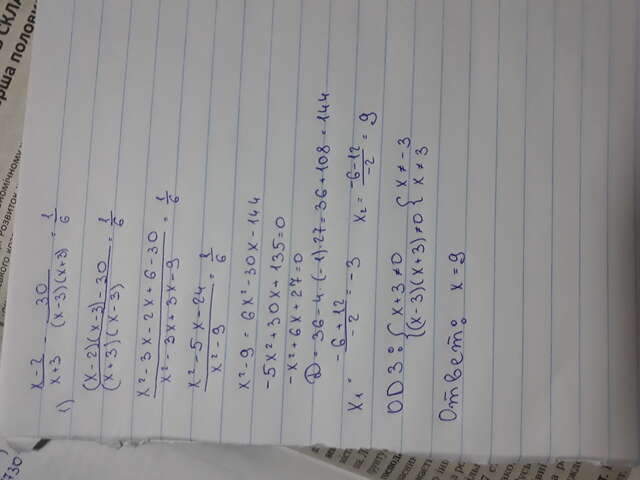 730
нського кра
Розвиток
кономічному
В СКЛА
ерша полови
x-2/x+3 - 30/(x-3)(x+3) = 1/6
1)
(x-2)(x-3)-30/(x+3)(x-3) = 1/6
x²-3x-2x+6-30/x²-3x+3x-9 = 1/6
x²-5x-24/x²-9 = 1/6
x²-9 = 6x²-30x-144
-5x²+30x+135=0
-x²+6x+27=0
D = 36-4·(-1)·27=36+108=144
x₁ = -6+12/-2 = -3 x₂ = -6-12/-2 = 9
ОДЗ: { x+3≠0 { x≠-3
{ (x-3)(x+3)≠0 { x≠3
Ответ: x=9